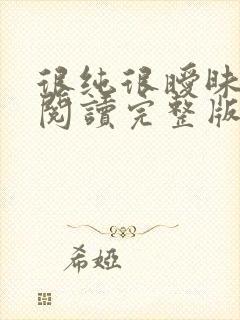 很纯很曖昧
閱讀完整版
希婭